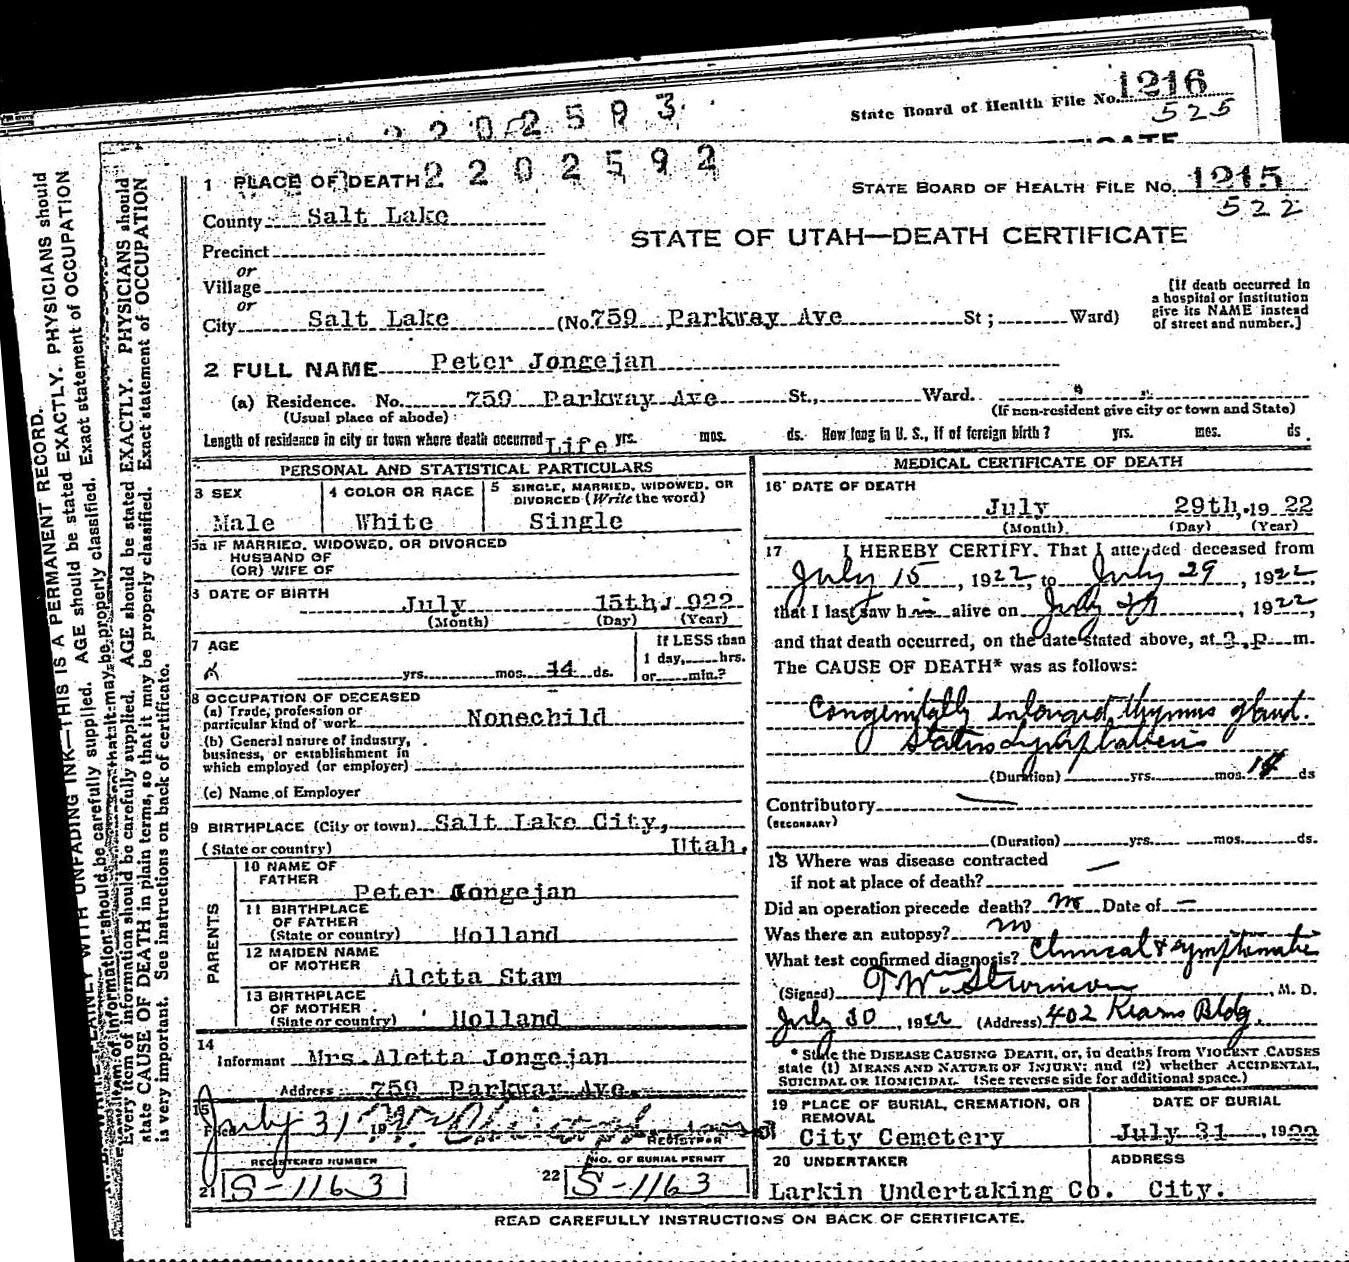 2202593
State Board of Health File No. 1216
525
1 PLACE OF DEATH 2202592
STATE BOARD OF HEALTH FILE NO. 1215
522
County Salt Lake
STATE OF UTAH—DEATH CERTIFICATE
Precinct
or
Village
or
City Salt Lake (No. 759 Parkway Ave St; Ward)
[If death occurred in
a hospital or institution
give its NAME instead
of street and number.]
2 FULL NAME Peter Jongejan
(a) Residence. No. 759 Parkway Ave St., Ward.
(Usual place of abode) (If non-resident give city or town and State)
Length of residence in city or town where death occurred Life yrs. mos. ds. How long in U. S., if of foreign birth? yrs. mos. ds.
PERSONAL AND STATISTICAL PARTICULARS
3 SEX Male
4 COLOR OR RACE White
5 SINGLE, MARRIED, WIDOWED, OR
DIVORCED (Write the word)
Single
5a IF MARRIED, WIDOWED, OR DIVORCED
HUSBAND OF
(OR) WIFE OF
6 DATE OF BIRTH July 15th, 1922
(Month) (Day) (Year)
7 AGE yrs. mos. 14 ds.
If LESS than
1 day, hrs.
or min.?
8 OCCUPATION OF DECEASED
(a) Trade, profession or
particular kind of work Nonechild
(b) General nature of industry,
business, or establishment in
which employed (or employer)
(c) Name of Employer
9 BIRTHPLACE (City or town) Salt Lake City,
(State or country) Utah.
PARENTS
10 NAME OF
FATHER Peter Jongejan
11 BIRTHPLACE
OF FATHER
(State or country) Holland
12 MAIDEN NAME
OF MOTHER Aletta Stam
13 BIRTHPLACE
OF MOTHER
(State or country) Holland
14
Informant Mrs. Aletta Jongejan
Address 759 Parkway Ave.
15
Filed July 31 19
REGISTRAR
REGISTERED NUMBER
21 S-1163
NO. OF BURIAL PERMIT
22 S-1163
MEDICAL CERTIFICATE OF DEATH
16 DATE OF DEATH
July 29th, 1922
(Month) (Day) (Year)
17 I HEREBY CERTIFY, That I attended deceased from
July 15, 1922, to July 29, 1922,
that I last saw him alive on July 29, 1922,
and that death occurred, on the date stated above, at 3 P m.
The CAUSE OF DEATH* was as follows:
Congenitally enlarged thymus gland.
Status Lymphaticus
(Duration) yrs. mos. 14 ds
Contributory
(SECONDARY)
(Duration) yrs. mos. ds.
18 Where was disease contracted
if not at place of death?
Did an operation precede death? no Date of —
Was there an autopsy? no
What test confirmed diagnosis? Clinical & symptomatic
(Signed) , M. D.
July 30, 1922 (Address) 402 Kearns Bldg.
* State the DISEASE CAUSING DEATH, or, in deaths from VIOLENT CAUSES
state (1) MEANS AND NATURE OF INJURY; and (2) whether ACCIDENTAL,
SUICIDAL OR HOMICIDAL (See reverse side for additional space.)
19 PLACE OF BURIAL, CREMATION, OR
REMOVAL
City Cemetery
DATE OF BURIAL
July 31, 1922
20 UNDERTAKER
Larkin Undertaking Co.
ADDRESS
City.
READ CAREFULLY INSTRUCTIONS ON BACK OF CERTIFICATE.
THIS IS A PERMANENT RECORD.
Every item of information should be carefully supplied. AGE should be stated EXACTLY. PHYSICIANS should
state CAUSE OF DEATH in plain terms, so that it may be properly classified. Exact statement of OCCUPATION
is very important. See instructions on back of certificate.